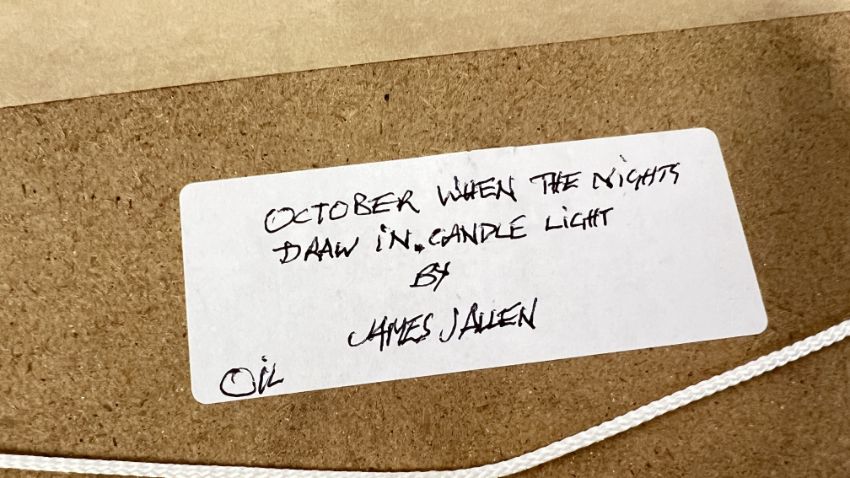 OCTOBER WHEN THE NIGHTS
DRAW IN. CANDLE LIGHT
BY
JAMES J ALLEN
OIL